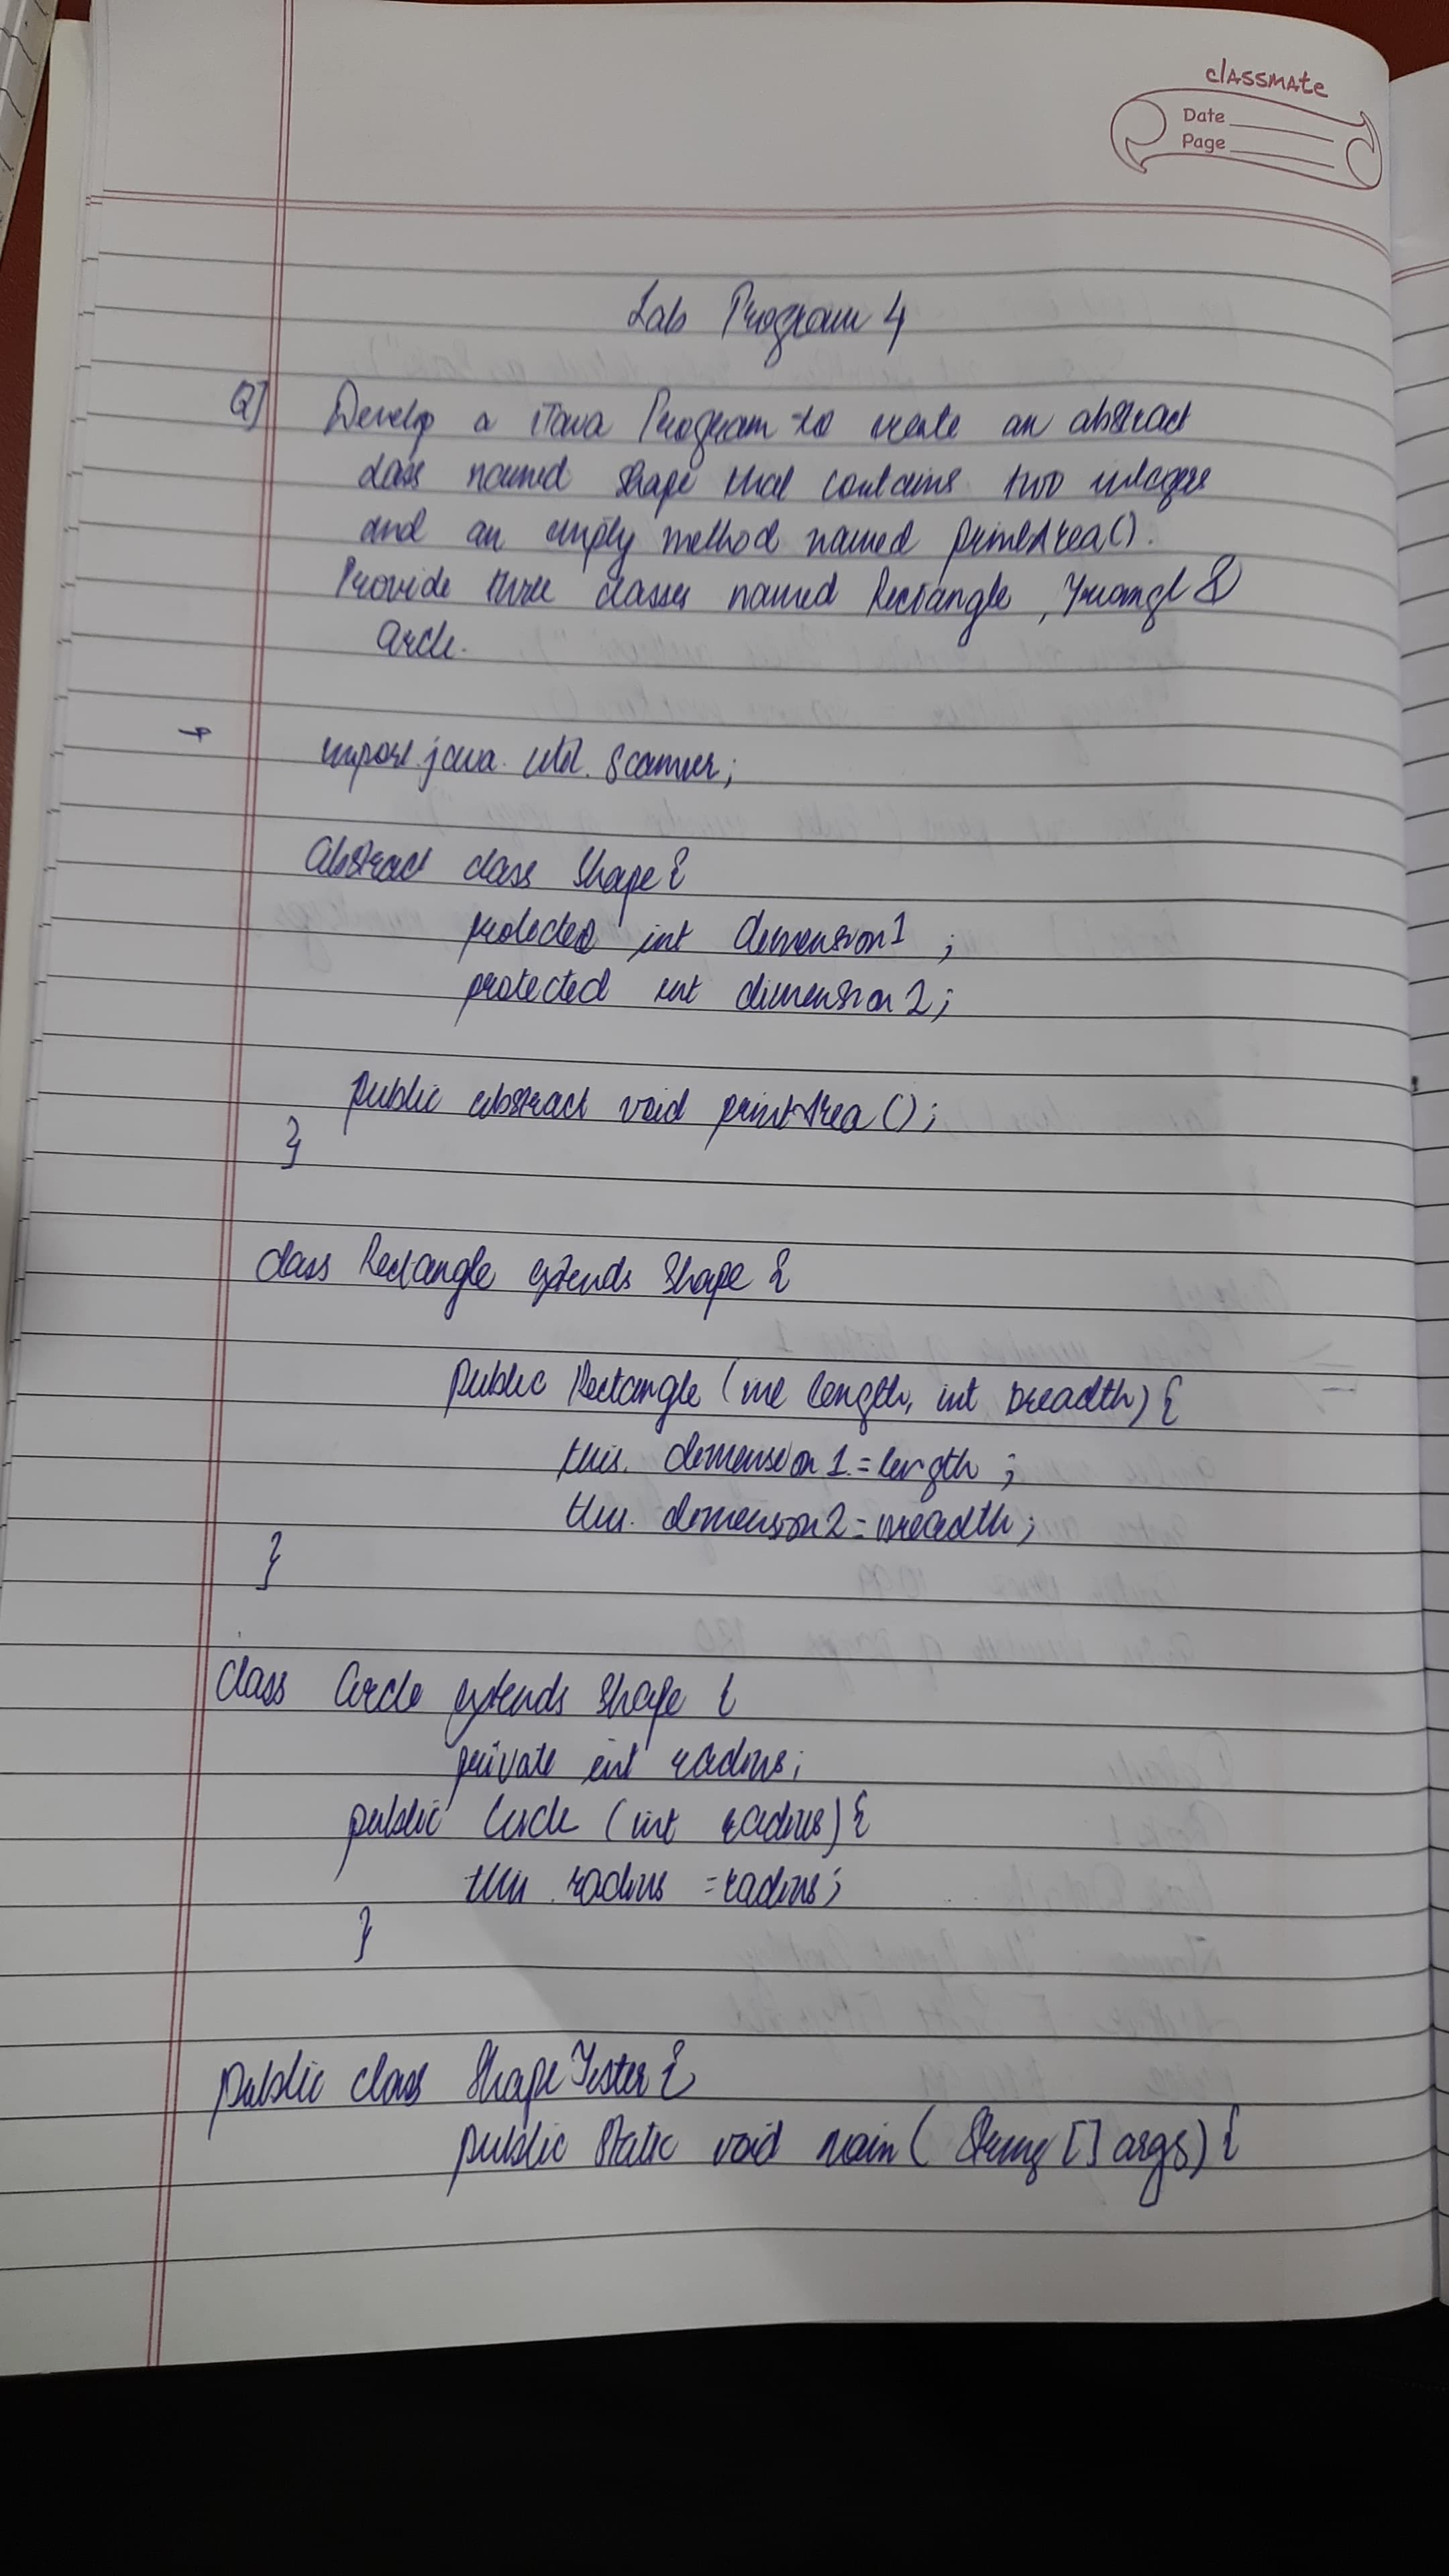 classmate
Date
Page
Lab Program 4
Q] Develop a Java Program to create an abstract
class named shape that contains two integers
and an empty method named printArea().
Provide three classes named Rectangle, Triangl &
Circle.
import java. util. Scanner;
abstract class Shape {
protected int dimension1 ;
protected int dimension2;
public abstract void printArea();
}
class Rectangle extends Shape {
public Rectangle (int length, int breadth) {
this. dimension1 = length ;
this. dimension2 = breadth;
}
class Circle extends Shape {
private int radius;
public Circle (int radius) {
this . radius = radius;
}
public class ShapeTester {
public static void main ( String [] args) {